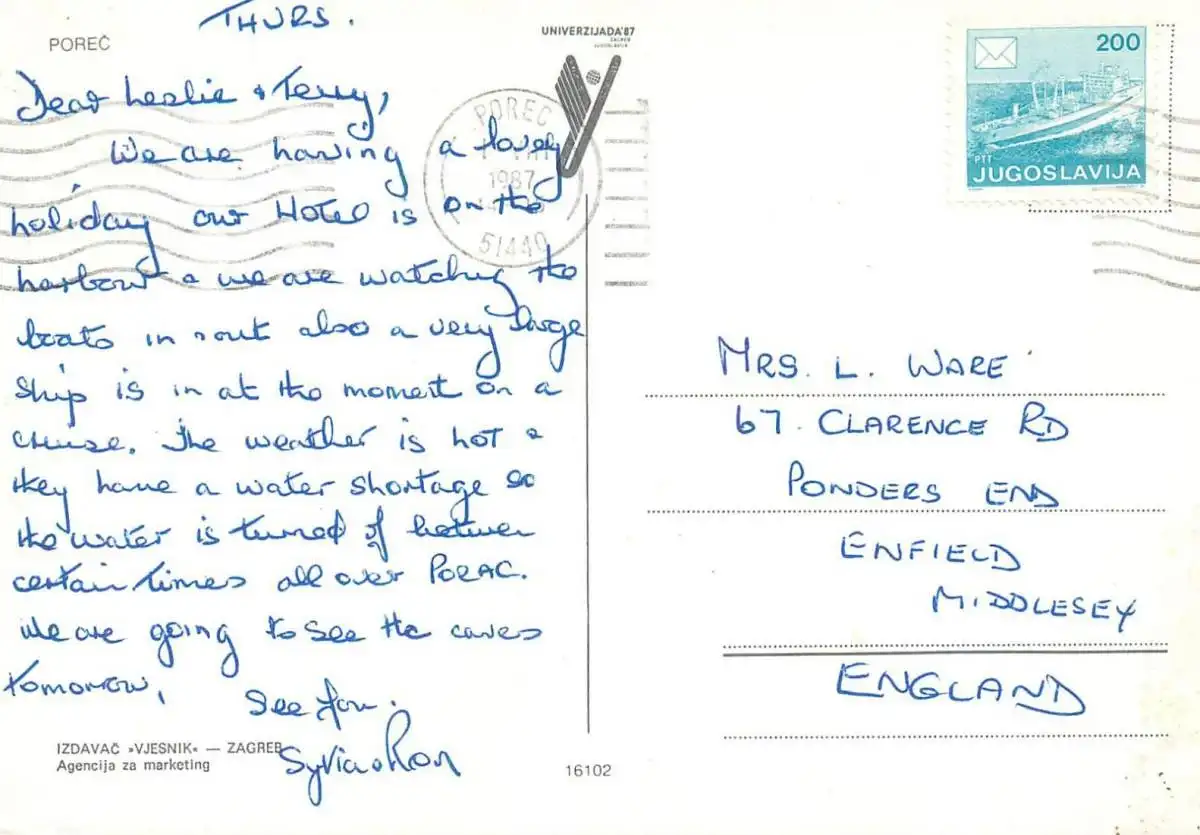 THURS.
POREČ
Dear Leslie & Terry,
We are having a lovely
holiday our Hotel is on the
harbour & we are watching the
boats in & out also a very large
ship is in at the moment on a
cruise. The weather is hot &
they have a water shortage so
the water is turned of between
certain times all over PORAC.
We are going to see the caves
tomorrow,
See You.
Sylvia & Ron
IZDAVAČ »VJESNIK« — ZAGREB
Agencija za marketing
16102
UNIVERZIJADA'87
ZAGREB
JUGOSLAVIJA
POREČ
1987
51440
200
PTT
JUGOSLAVIJA
MRS. L. WARE
67. CLARENCE RD
PONDERS END
ENFIELD
MIDDLESEX
ENGLAND